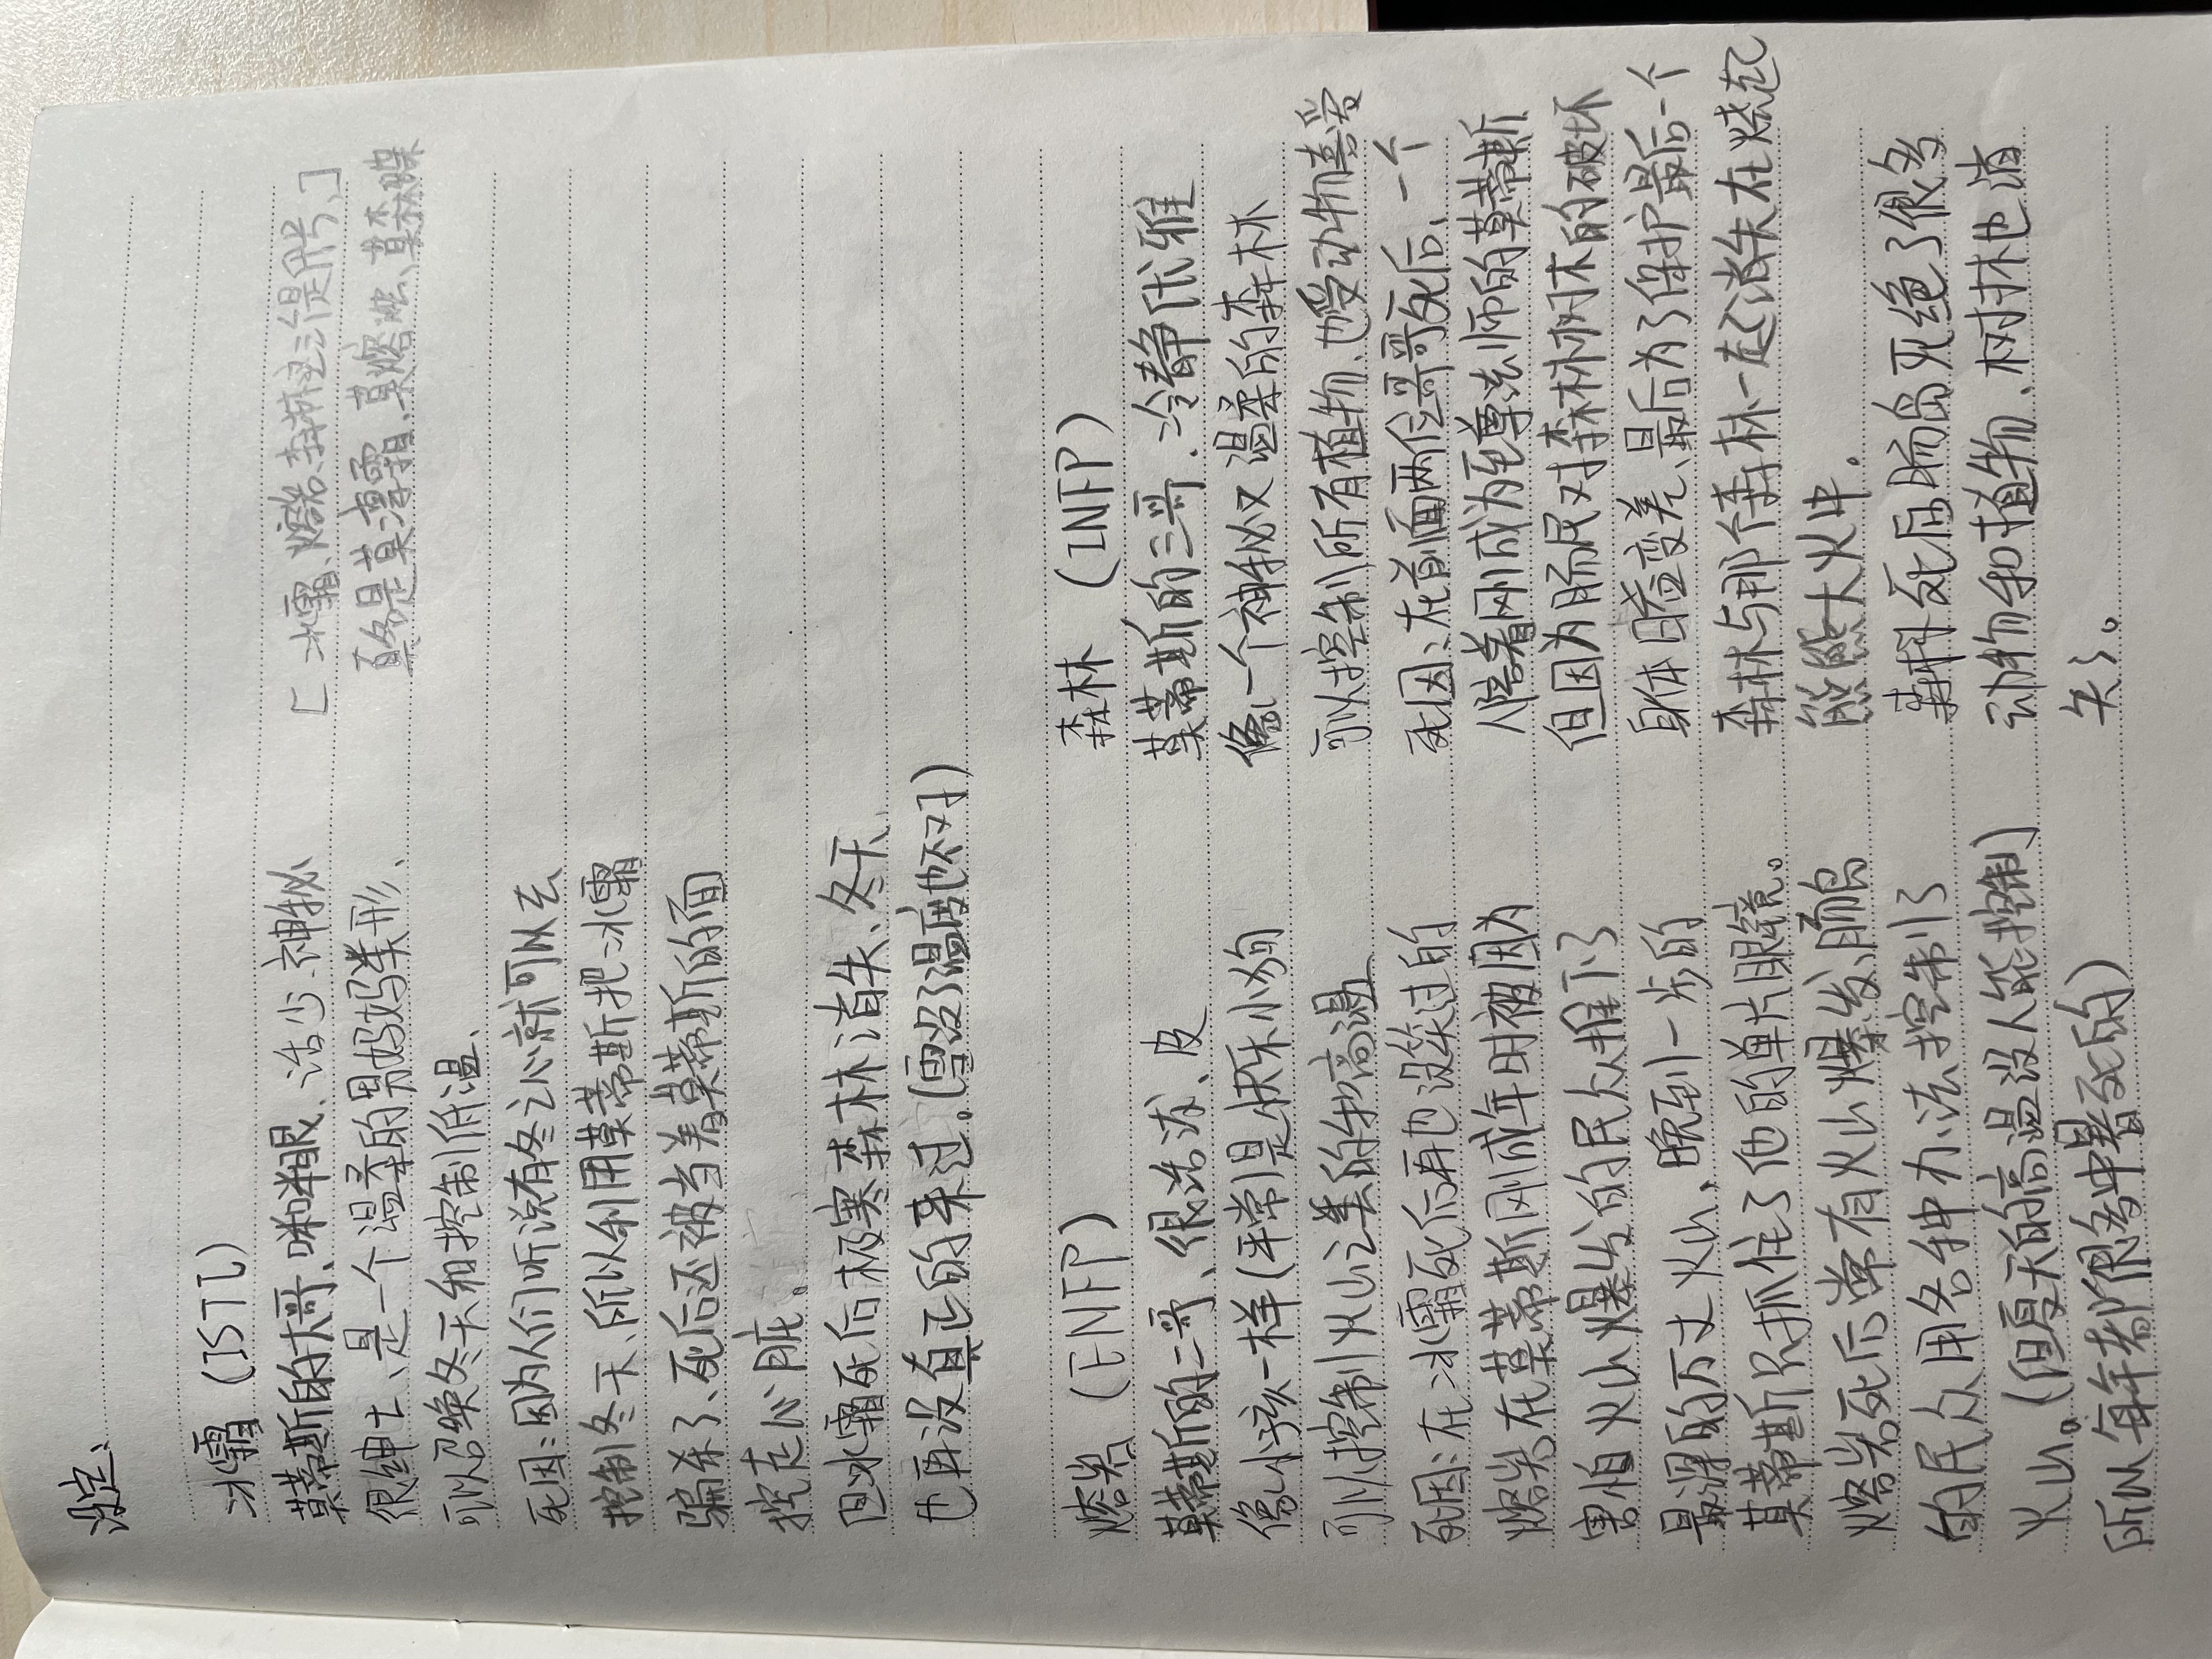 设定、
冰霜 (ISTJ)
莫蒂斯的大哥、眯眯眼、话少、神秘
很绅士、是一个温柔的男妈妈类形、
可以召唤冬天和控制低温、
死因：因为人们听说有冬之心就可以去
控制冬天、所以利用莫蒂斯把冰霜
骗杀了、死后还被当着莫蒂斯的面
挖走心脏。
因冰霜死后极寒森林消失、冬天
也再没有真正的来过。(雪没了温度也不对)
[冰霜、熔岩、森林这三个是
真名是莫凛霜、莫熔
熔岩 (ENFP)
莫蒂斯的二哥、很活泼、皮
像小孩一样 (平常是快乐小狗
可以控制火山之类的和高温
死因：在冰霜死后再也没笑过的
熔岩在莫蒂斯刚成年时被因为
害怕火山爆发的民众推下了
最深的万丈火山、晚到一步的
莫蒂斯只抓住了他的单片眼镜。
熔岩死后常有火山爆发、肠岛
的民众用各种办法控制了
火山。(但夏天的高温没人能控制)
所以每年都很多中暑死的)
森林 (INFP)
莫蒂斯的三哥、冷静优雅
像一个神秘又温柔的森林
可以控制所有植物、也受动物喜爱
死因：在前面两位哥哥死后、一个
人陪着刚成为至尊法师的莫蒂斯
但因为肠民对森林树木的破坏
身体日益变差、最后为了保护最后一个
森林与那个森林一起消失在烧起
熊熊大火中。
森林死后肠岛灭绝了很多
动物和植物、树林也消
失了。